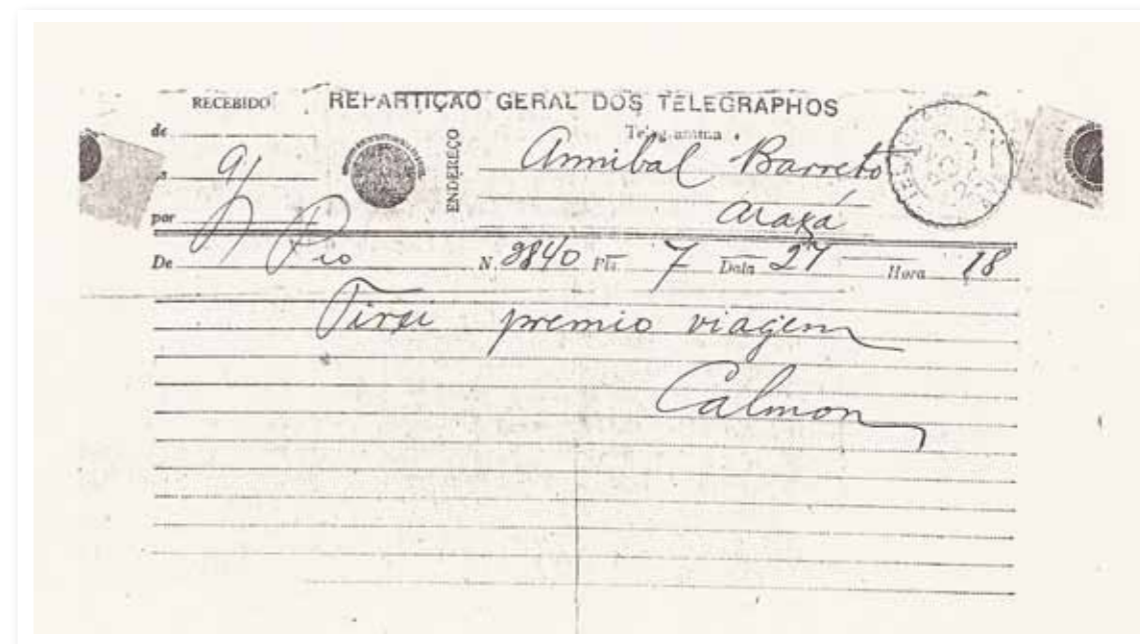 RECEBIDO
REPARTIÇÃO GERAL DOS TELEGRAPHOS
Telegramma
de
ENDEREÇO
Annibal Barreto
9/
por
Araxá
De Rio N. 9840 Pls 7 Data 27 Hora 18
Tirei premio viagem
Calmon